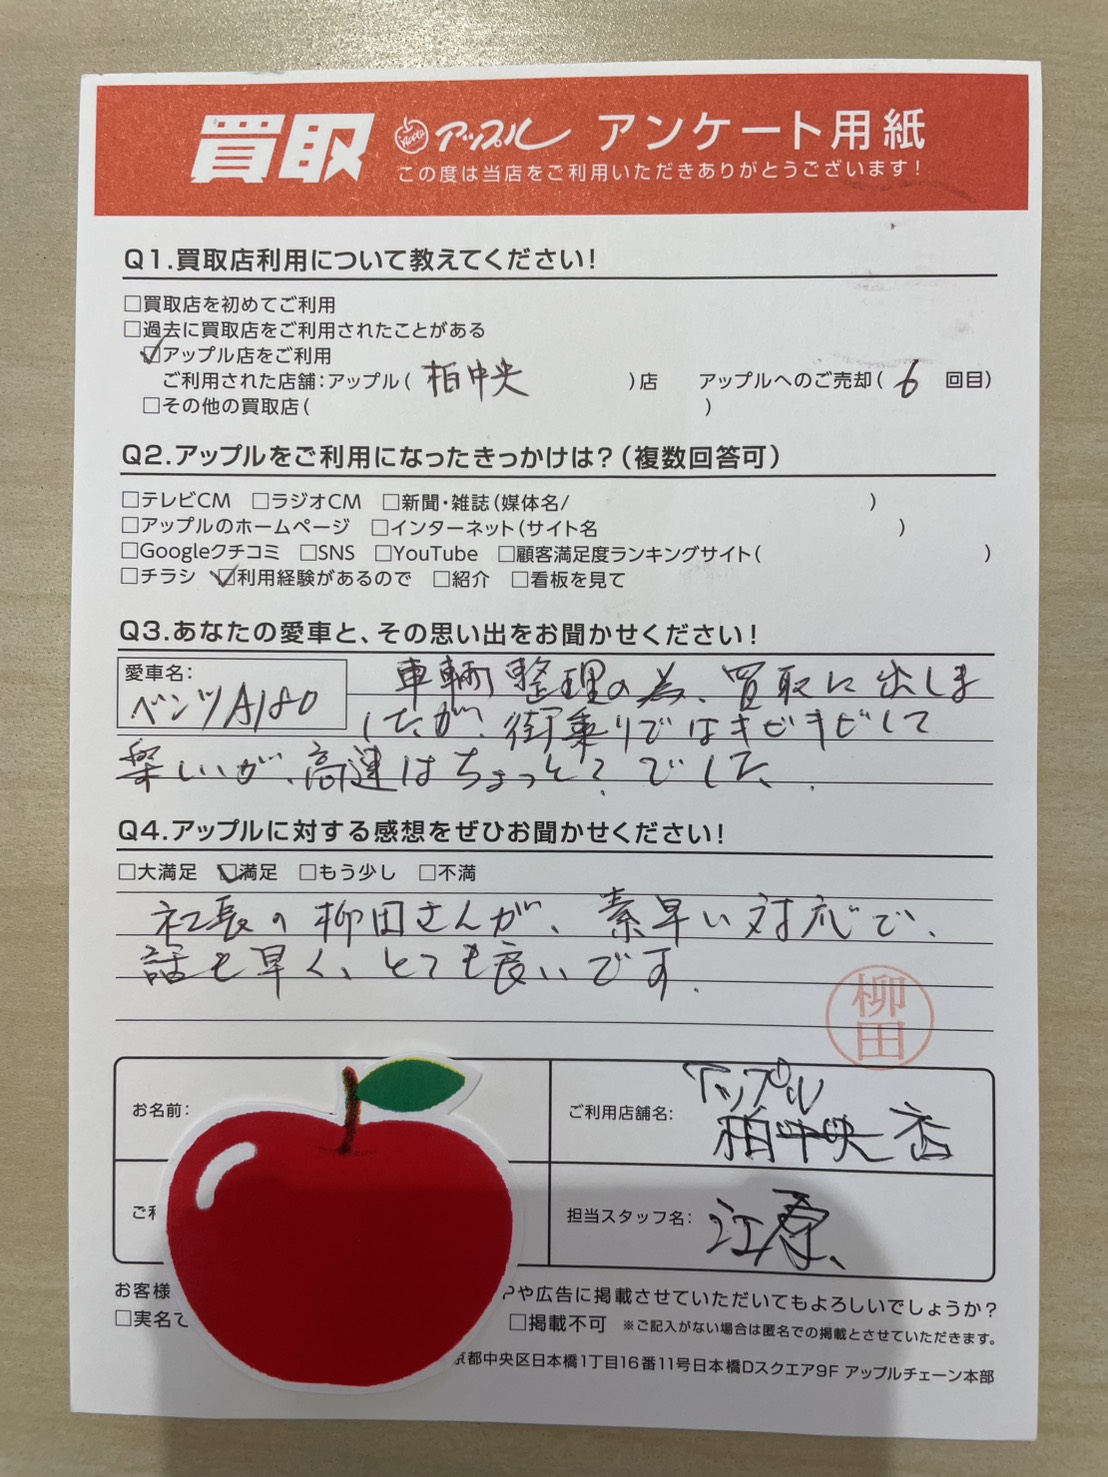 買取 アップル アンケート用紙
この度は当店をご利用いただきありがとうございます!
Q1.買取店利用について教えてください!
□買取店を初めてご利用
□過去に買取店をご利用されたことがある
☑アップル店をご利用
ご利用された店舗:アップル( 柏中央 )店 アップルへのご売却( 6 回目)
□その他の買取店( )
Q2.アップルをご利用になったきっかけは?(複数回答可)
□テレビCM □ラジオCM □新聞・雑誌(媒体名/ )
□アップルのホームページ □インターネット(サイト名 )
□Googleクチコミ □SNS □YouTube □顧客満足度ランキングサイト( )
□チラシ ☑利用経験があるので □紹介 □看板を見て
Q3.あなたの愛車と、その思い出をお聞かせください!
愛車名:
ベンツA180
車輌整理の為、買取に出しま
したが、街乗りではキビキビして
楽しいが、高速はちょっと?でした.
Q4.アップルに対する感想をぜひお聞かせください!
□大満足 ☑満足 □もう少し □不満
社長の柳田さんが、素早い対応で、
話も早く、とても良いです.
柳田
お名前:
ご利用店舗名: アップル
柏中央店
ご利
担当スタッフ名: 江原、
お客様 Pや広告に掲載させていただいてもよろしいでしょうか?
□実名で □掲載不可 ※ご記入がない場合は匿名での掲載とさせていただきます。
京都中央区日本橋1丁目16番11号日本橋Dスクエア9F アップルチェーン本部